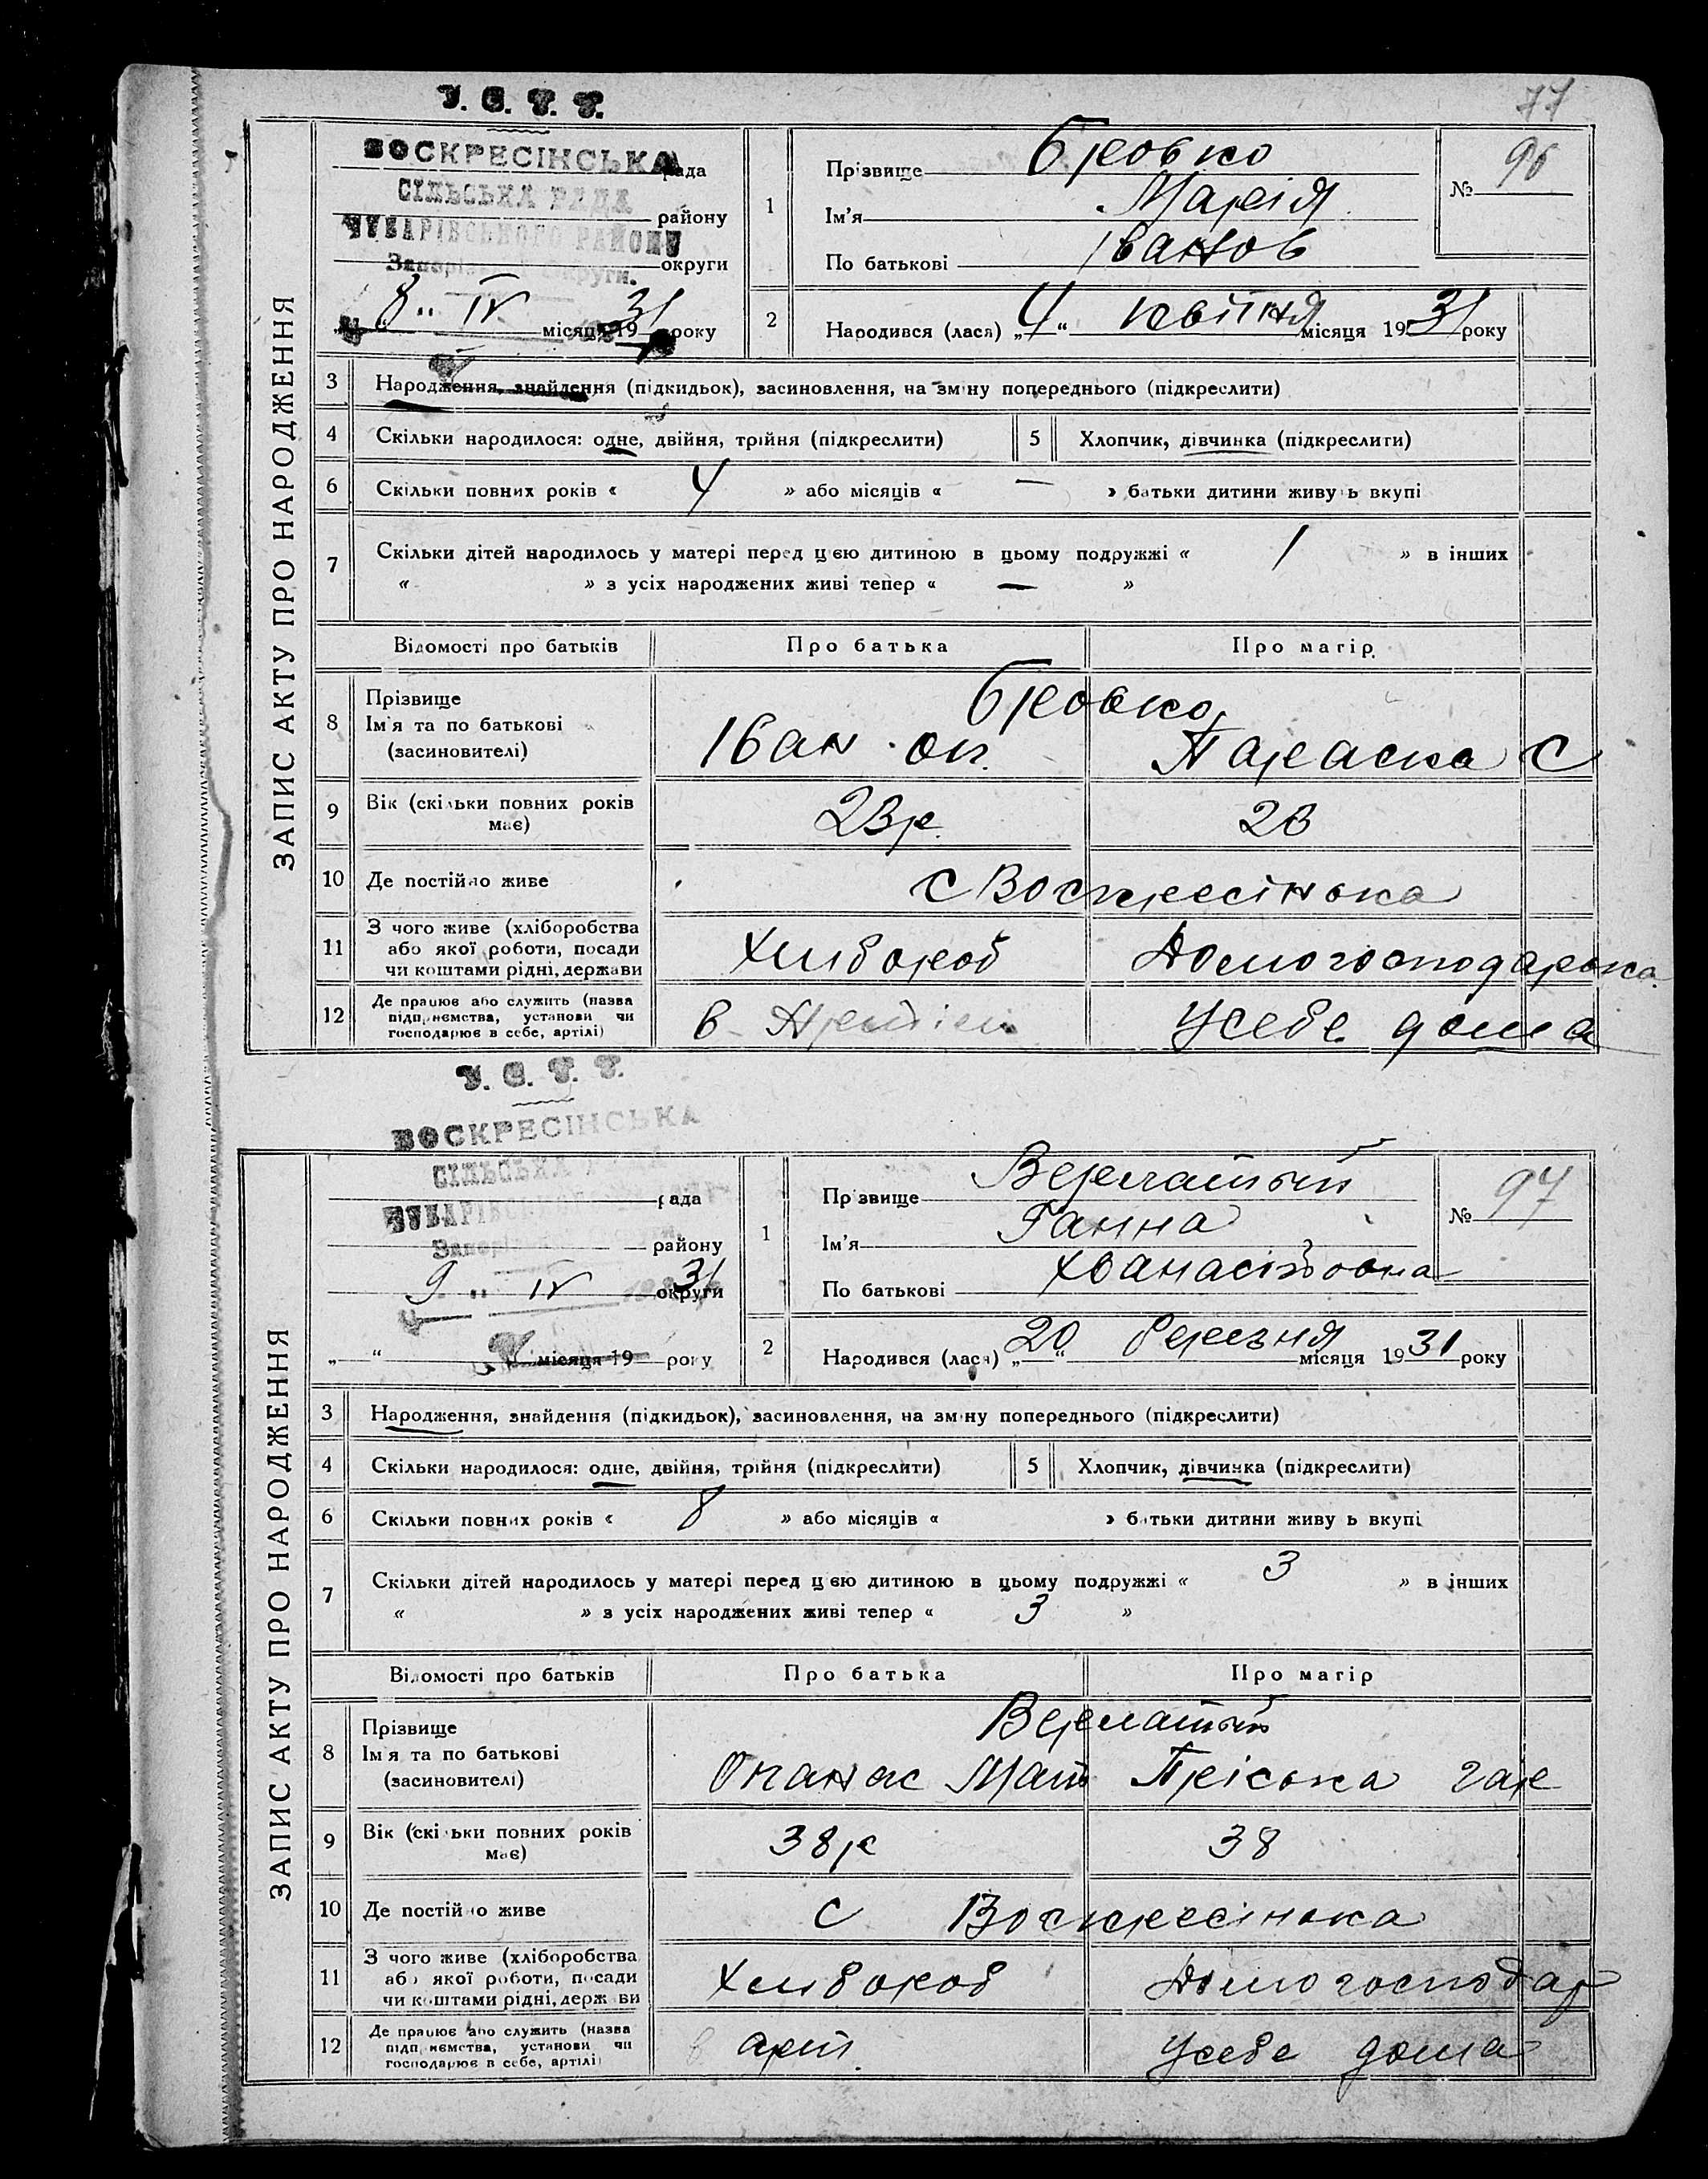 77
У. С. Р. Р.
ВОСКРЕСІНСЬКА рада
СІЛЬСЬКА РАДА
району
ЧУБАРІВСЬКОГО РАЙОНУ
округи
8 " IV місяця 1931 року
1
Прізвище Бровко
Ім'я Марія
По батькові Іванов
№ 96
2
Народився (лася) „4“ квітня місяця 1931 року
ЗАПИС АКТУ ПРО НАРОДЖЕННЯ
3 Народження, знайдення (підкидьок), засиновлення, на зміну попереднього (підкреслити)
4 Скільки народилося: одне, двійня, трійня (підкреслити)
5 Хлопчик, дівчинка (підкреслити)
6 Скільки повних років « 4 » або місяців « — » батьки дитини живуть вкупі
7 Скільки дітей народилось у матері перед цією дитиною в цьому подружжі « 1 » в інших
« » з усіх народжених живі тепер « — »
Відомості про батьків Про батька Про матір
8 Прізвище Бровко
Ім'я та по батькові Іван Параска С
(засиновителі)
9 Вік (скільки повних років має) 23 р. 23
10 Де постійно живе с Воскресінька
11 З чого живе (хліборобства
або якої роботи, посади
чи коштами рідні, держави
Хлібороб Домогосподарка
12 Де працює або служить (назва
підприємства, установи чи
господарює в себе, артілі)
в Артілі У себе дома
У. С. Р. Р.
ВОСКРЕСІНСЬКА
СІЛЬСЬКА РАДА
рада
ЧУБАРІВСЬКОГО
району
9 " IV 31 округи
„ “ місяця 19 року
1
Прізвище Верлатый
Ім'я Ганна
По батькові
№ 97
2
Народився (лася) „20“ березня місяця 1931 року
ЗАПИС АКТУ ПРО НАРОДЖЕННЯ
3 Народження, знайдення (підкидьок), засиновлення, на зміну попереднього (підкреслити)
4 Скільки народилося: одне, двійня, трійня (підкреслити)
5 Хлопчик, дівчинка (підкреслити)
6 Скільки повних років « 8 » або місяців « » батьки дитини живуть вкупі
7 Скільки дітей народилось у матері перед цією дитиною в цьому подружжі « 3 » в інших
« » з усіх народжених живі тепер « 3 »
Відомості про батьків Про батька Про матір
8 Прізвище Верлатый
Ім'я та по батькові Опанас Мат Пріська Гар
(засиновителі)
9 Вік (скільки повних років має) 38 р 38
10 Де постійно живе с Воскресінька
11 З чого живе (хліборобства
або якої роботи, посади
чи коштами рідні, держави
Хлібороб Домогосподар
12 Де працює або служить (назва
підприємства, установи чи
господарює в себе, артілі)
в арт. У себе дома